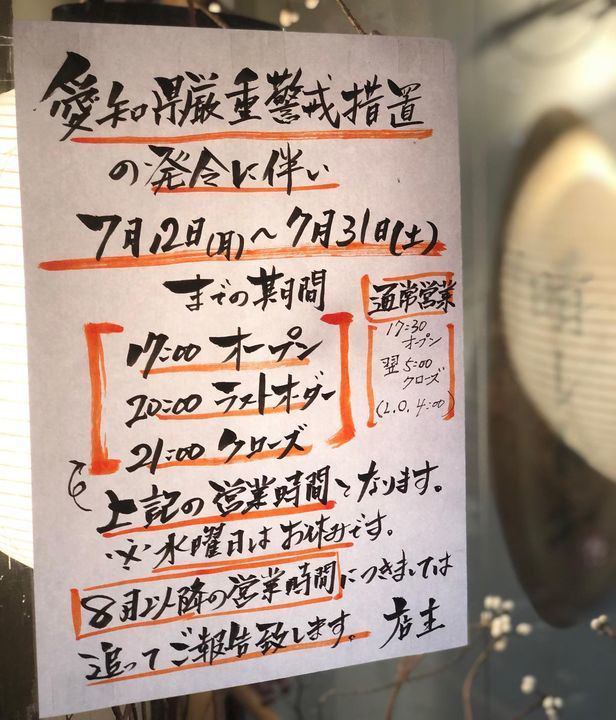 愛知県厳重警戒措置
の発令に伴い
7月12日(月)〜7月31日(土)
までの期間
17:00 オープン
20:00 ラストオーダー
21:00 クローズ
通常営業
17:30
オープン
翌5:00
クローズ
(L.O. 4:00)
上記の営業時間となります。
※水曜日はお休みです。
8月以降の営業時間につきましては
追ってご報告致します。 店主